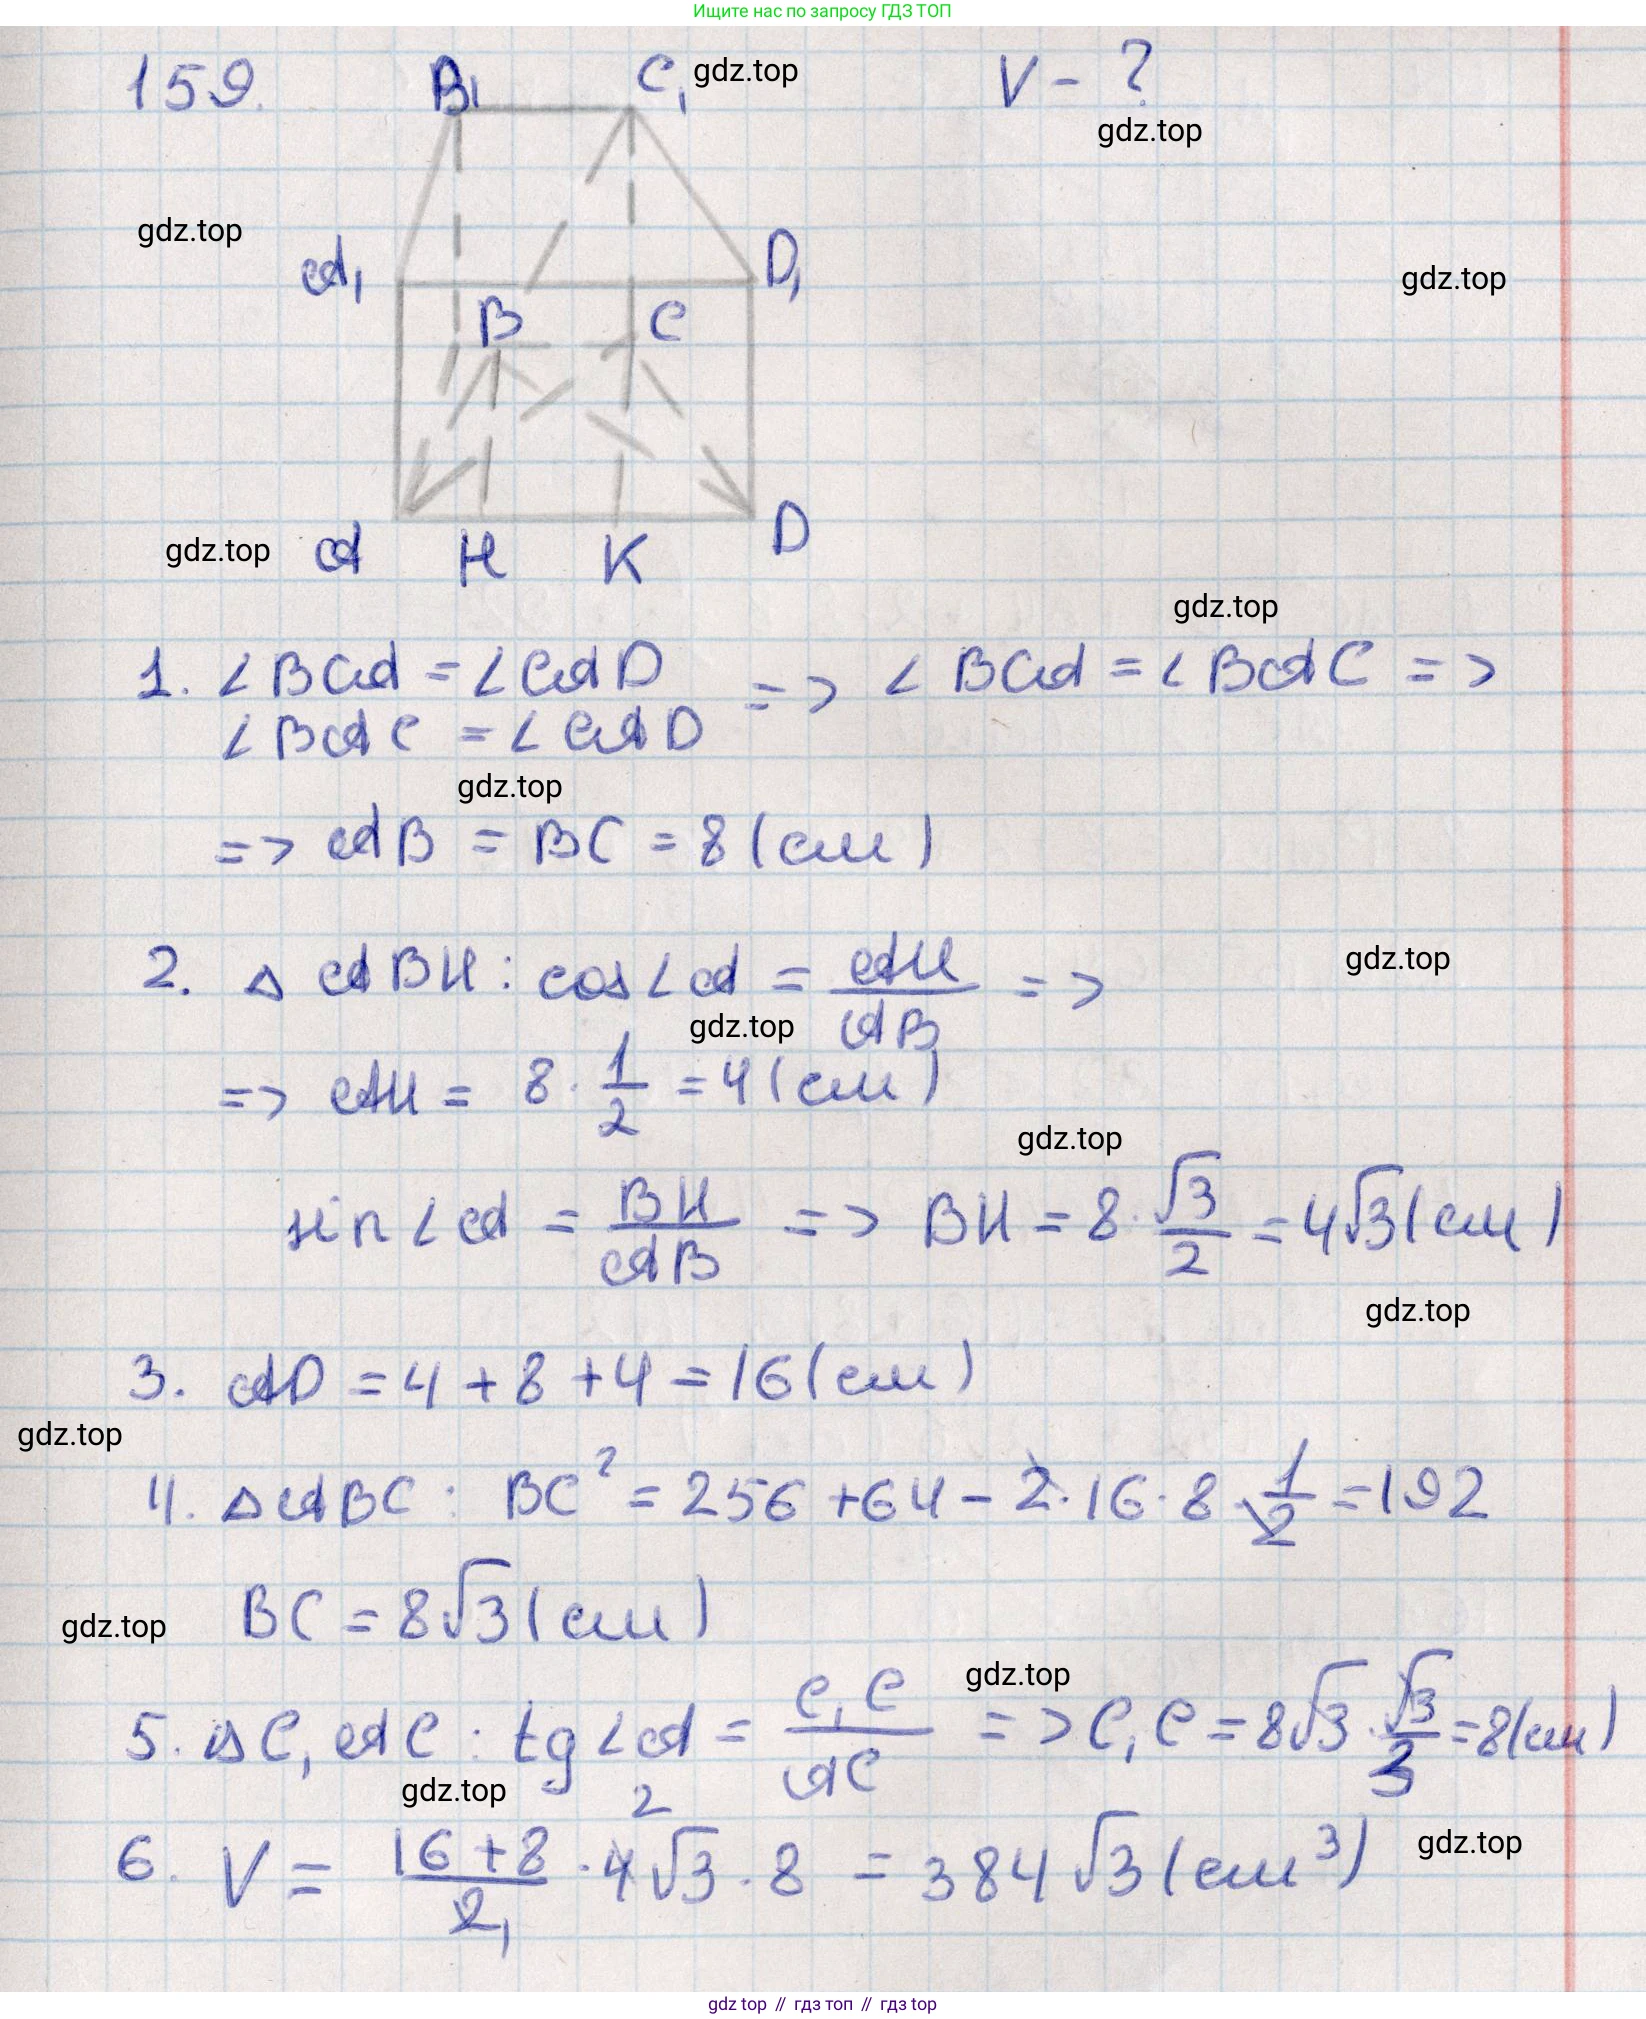 Ищите нас по запросу ГДЗ ТОП
159. B₁ C₁ gdz.top V - ?
gdz.top
gdz.top
A₁ D₁ gdz.top
B C
gdz.top A H K D
gdz.top
1. ∠BCA = ∠CAD => ∠BCA = ∠BAC =>
∠BAC = ∠CAD
gdz.top
=> AB = BC = 8 (см)
2. △ABH: cos∠A = AH/AB => gdz.top
gdz.top
=> AH = 8 · 1/2 = 4 (см)
gdz.top
sin∠A = BH/AB => BH = 8 · √3/2 = 4√3 (см)
gdz.top
3. AD = 4 + 8 + 4 = 16 (см)
gdz.top
4. △ABC: BC² = 256 + 64 - 2 · 16 · 8 · 1/2 = 192
gdz.top BC = 8√3 (см)
gdz.top
5. △C₁AC: tg∠A = C₁C/AC => C₁C = 8√3 · √3/3 = 8 (см)
gdz.top
6. V = (16 + 8)/2₁ · 4² √3 · 8 = 384√3 (см³) gdz.top
gdz top // гдз топ // гдз top